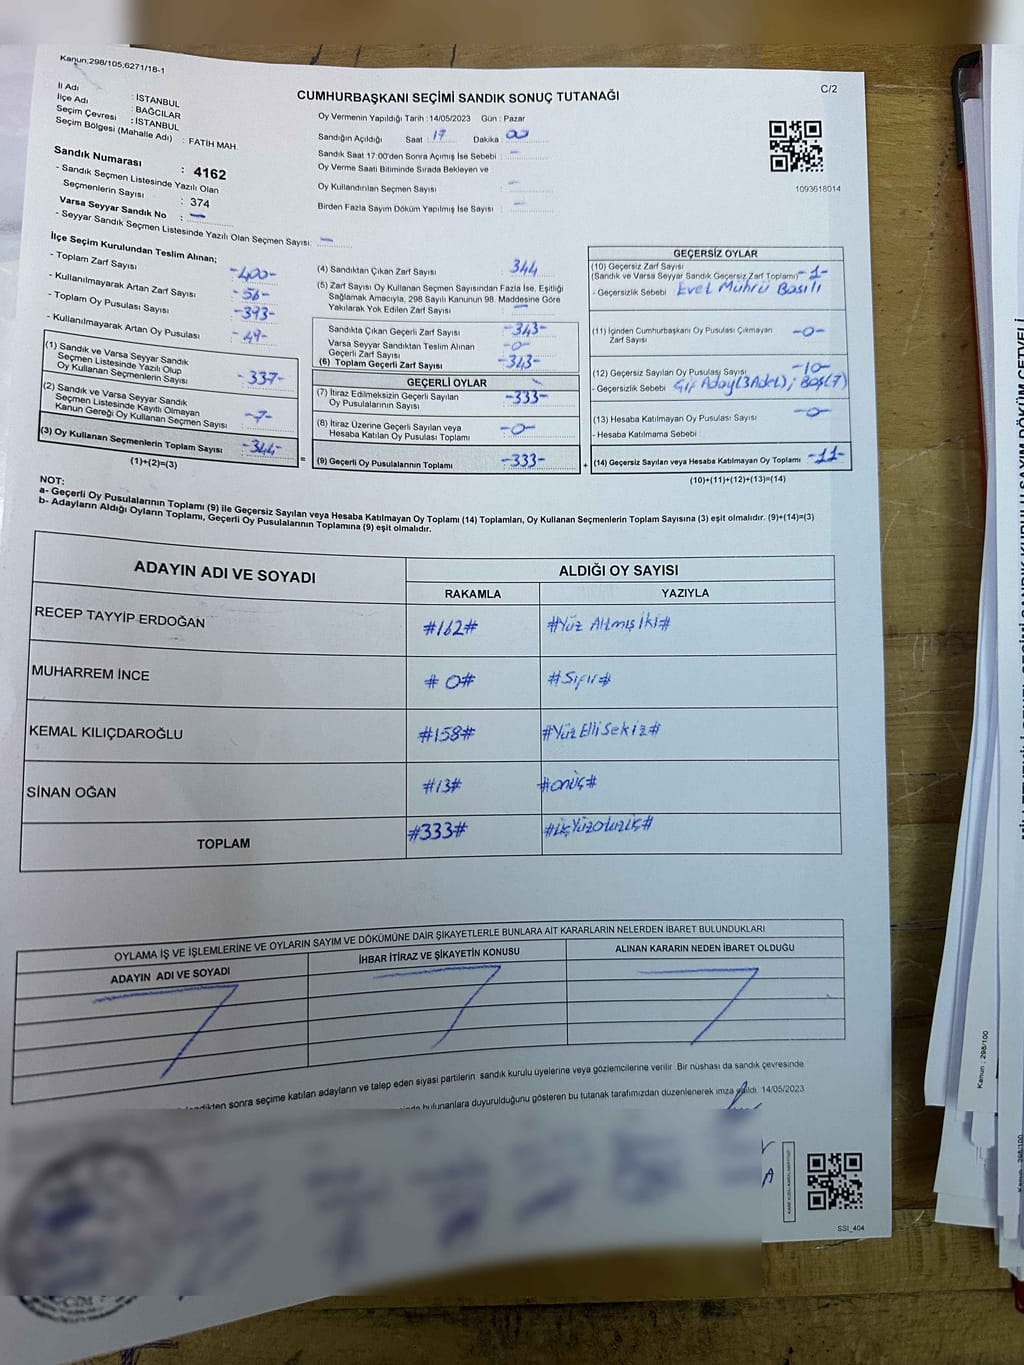 Kanun:298/105;6271/18-1
C/2
İl Adı : İSTANBUL
İlçe Adı : BAĞCILAR
Seçim Çevresi : İSTANBUL
Seçim Bölgesi (Mahalle Adı) : FATİH MAH.
CUMHURBAŞKANI SEÇİMİ SANDIK SONUÇ TUTANAĞI
Oy Vermenin Yapıldığı Tarih :14/05/2023 Gün : Pazar
Sandığın Açıldığı Saat : 17 Dakika : 00
Sandık Saat 17:00'den Sonra Açımış İse Sebebi : -
Oy Verme Saati Bitiminde Sırada Bekleyen ve
Oy Kullandırılan Seçmen Sayısı : -
Birden Fazla Sayım Döküm Yapılmış İse Sayısı : -
1093618014
Sandık Numarası : 4162
- Sandık Seçmen Listesinde Yazılı Olan
Seçmenlerin Sayısı : 374
Varsa Seyyar Sandık No : -
- Seyyar Sandık Seçmen Listesinde Yazılı Olan Seçmen Sayısı: -
İlçe Seçim Kurulundan Teslim Alınan;
- Toplam Zarf Sayısı : -400-
- Kullanılmayarak Artan Zarf Sayısı : -56-
- Toplam Oy Pusulası Sayısı : -393-
- Kullanılmayarak Artan Oy Pusulası : -49-
(1) Sandık ve Varsa Seyyar Sandık
Seçmen Listesinde Yazılı Olup
Oy Kullanan Seçmenlerin Sayısı : -337-
(2) Sandık ve Varsa Seyyar Sandık
Seçmen Listesinde Kayıtlı Olmayan
Kanun Gereği Oy Kullanan Seçmen Sayısı : -7-
(3) Oy Kullanan Seçmenlerin Toplam Sayısı : -344-
(1)+(2)=(3)
=
(4) Sandıktan Çıkan Zarf Sayısı : 344
(5) Zarf Sayısı Oy Kullanan Seçmen Sayısından Fazla İse, Eşitliği
Sağlamak Amacıyla, 298 Sayılı Kanunun 98. Maddesine Göre
Yakılarak Yok Edilen Zarf Sayısı : -
Sandıkta Çıkan Geçerli Zarf Sayısı : -343-
Varsa Seyyar Sandıktan Teslim Alınan
Geçerli Zarf Sayısı : -0-
(6) Toplam Geçerli Zarf Sayısı : -343-
GEÇERLİ OYLAR
(7) İtiraz Edilmeksizin Geçerli Sayılan
Oy Pusulalarının Sayısı : -333-
(8) İtiraz Üzerine Geçerli Sayılan veya
Hesaba Katılan Oy Pusulası Toplamı : -0-
(9) Geçerli Oy Pusulalarının Toplamı : -333-
+
GEÇERSİZ OYLAR
(10) Geçersiz Zarf Sayısı
(Sandık ve Varsa Seyyar Sandık Geçersiz Zarf Toplamı) -1-
- Geçersizlik Sebebi : Evet Mührü Basılı
(11) İçinden Cumhurbaşkanı Oy Pusulası Çıkmayan
Zarf Sayısı : -0-
(12) Geçersiz Sayılan Oy Pusulası Sayısı : -10-
- Geçersizlik Sebebi : Çift Aday(3Adet); Boş(7)
(13) Hesaba Katılmayan Oy Pusulası Sayısı : -0-
- Hesaba Katılmama Sebebi :
(14) Geçersiz Sayılan veya Hesaba Katılmayan Oy Toplamı : -11-
(10)+(11)+(12)+(13)=(14)
NOT:
a- Geçerli Oy Pusulalarının Toplamı (9) ile Geçersiz Sayılan veya Hesaba Katılmayan Oy Toplamı (14) Toplamları, Oy Kullanan Seçmenlerin Toplam Sayısına (3) eşit olmalıdır. (9)+(14)=(3)
b- Adayların Aldığı Oyların Toplamı, Geçerli Oy Pusulalarının Toplamına (9) eşit olmalıdır.
ADAYIN ADI VE SOYADI ALDIĞI OY SAYISI
RAKAMLA YAZIYLA
RECEP TAYYİP ERDOĞAN #162# #Yüz Altmış İki#
MUHARREM İNCE #0# #Sıfır#
KEMAL KILIÇDAROĞLU #158# #Yüz Elli Sekiz#
SİNAN OĞAN #13# #onüç#
TOPLAM #333# #ÜçYüzOtuzüç#
OYLAMA İŞ VE İŞLEMLERİNE VE OYLARIN SAYIM VE DÖKÜMÜNE DAİR ŞİKAYETLERLE BUNLARA AİT KARARLARIN NELERDEN İBARET BULUNDUKLARI
ADAYIN ADI VE SOYADI İHBAR İTİRAZ VE ŞİKAYETİN KONUSU ALINAN KARARIN NEDEN İBARET OLDUĞU
sonra seçime katılan adayların ve talep eden siyasi partilerin sandık kurulu üyelerine veya gözlemcilerine verilir Bir nüshası da sandık çevresinde
bulunanlara duyurulduğunu gösteren bu tutanak tarafımızdan düzenlenerek imza 14/05/2023
SSI_404
Kanun : 298/100